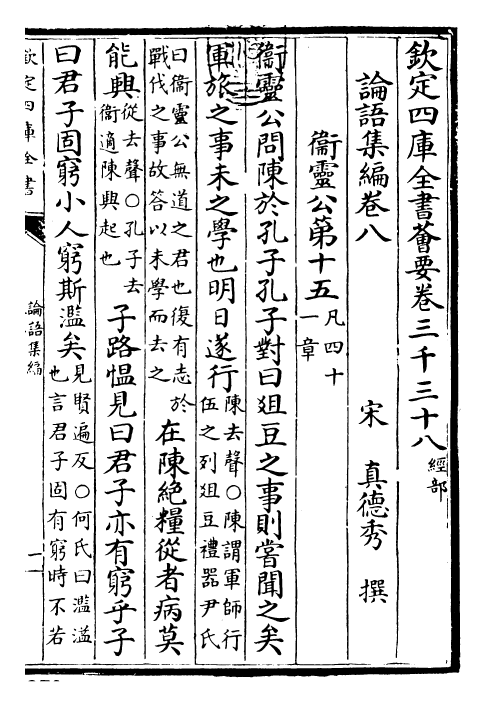 欽定四庫全書薈要卷三千三十八經部
論語集編卷八
宋 真德秀 撰
衛靈公第十五凡四十一章
衛靈公問陳於孔子孔子對曰俎豆之事則嘗聞之矣
軍旅之事未之學也明日遂行陳去聲○陳謂軍師行伍之列俎豆禮器尹氏
曰衛靈公無道之君也復有志於戰伐之事故答以未學而去之在陳絕糧從者病莫
能興從去聲○孔子去衛適陳興起也子路慍見曰君子亦有窮乎子
曰君子固窮小人窮斯濫矣見賢遍反○何氏曰濫溢也言君子固有窮時不若
欽定四庫全書
論語集編
一